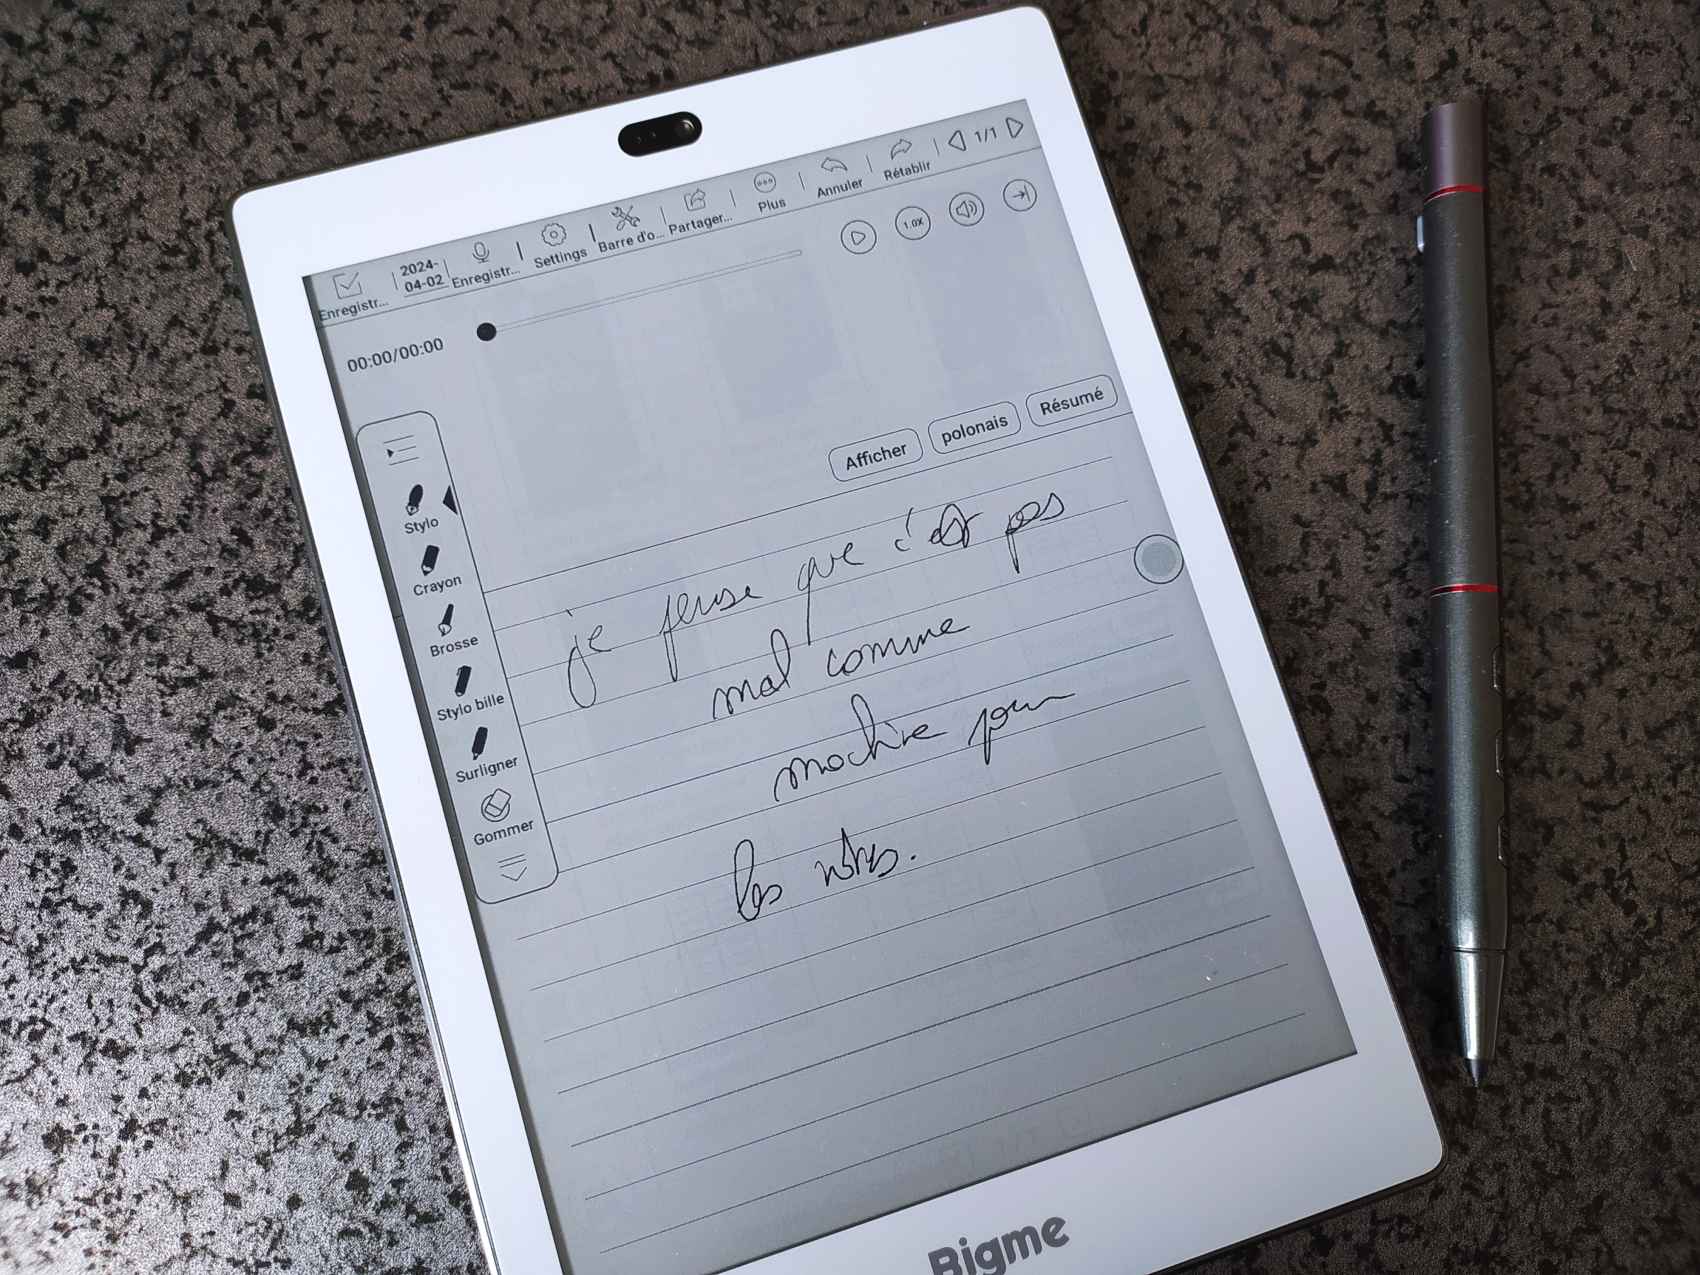 Enregistr...
2024-
04-02
Enregistr...
Settings
Barre d'o...
Partager...
Plus
Annuler
Rétablir
1/1
00:00/00:00
1.0X
Afficher
polonais
Résumé
Stylo
Crayon
Brosse
Stylo bille
Surligner
Gommer
je pense que c'est pas
mal comme
machine pour
les notes.
Bigme